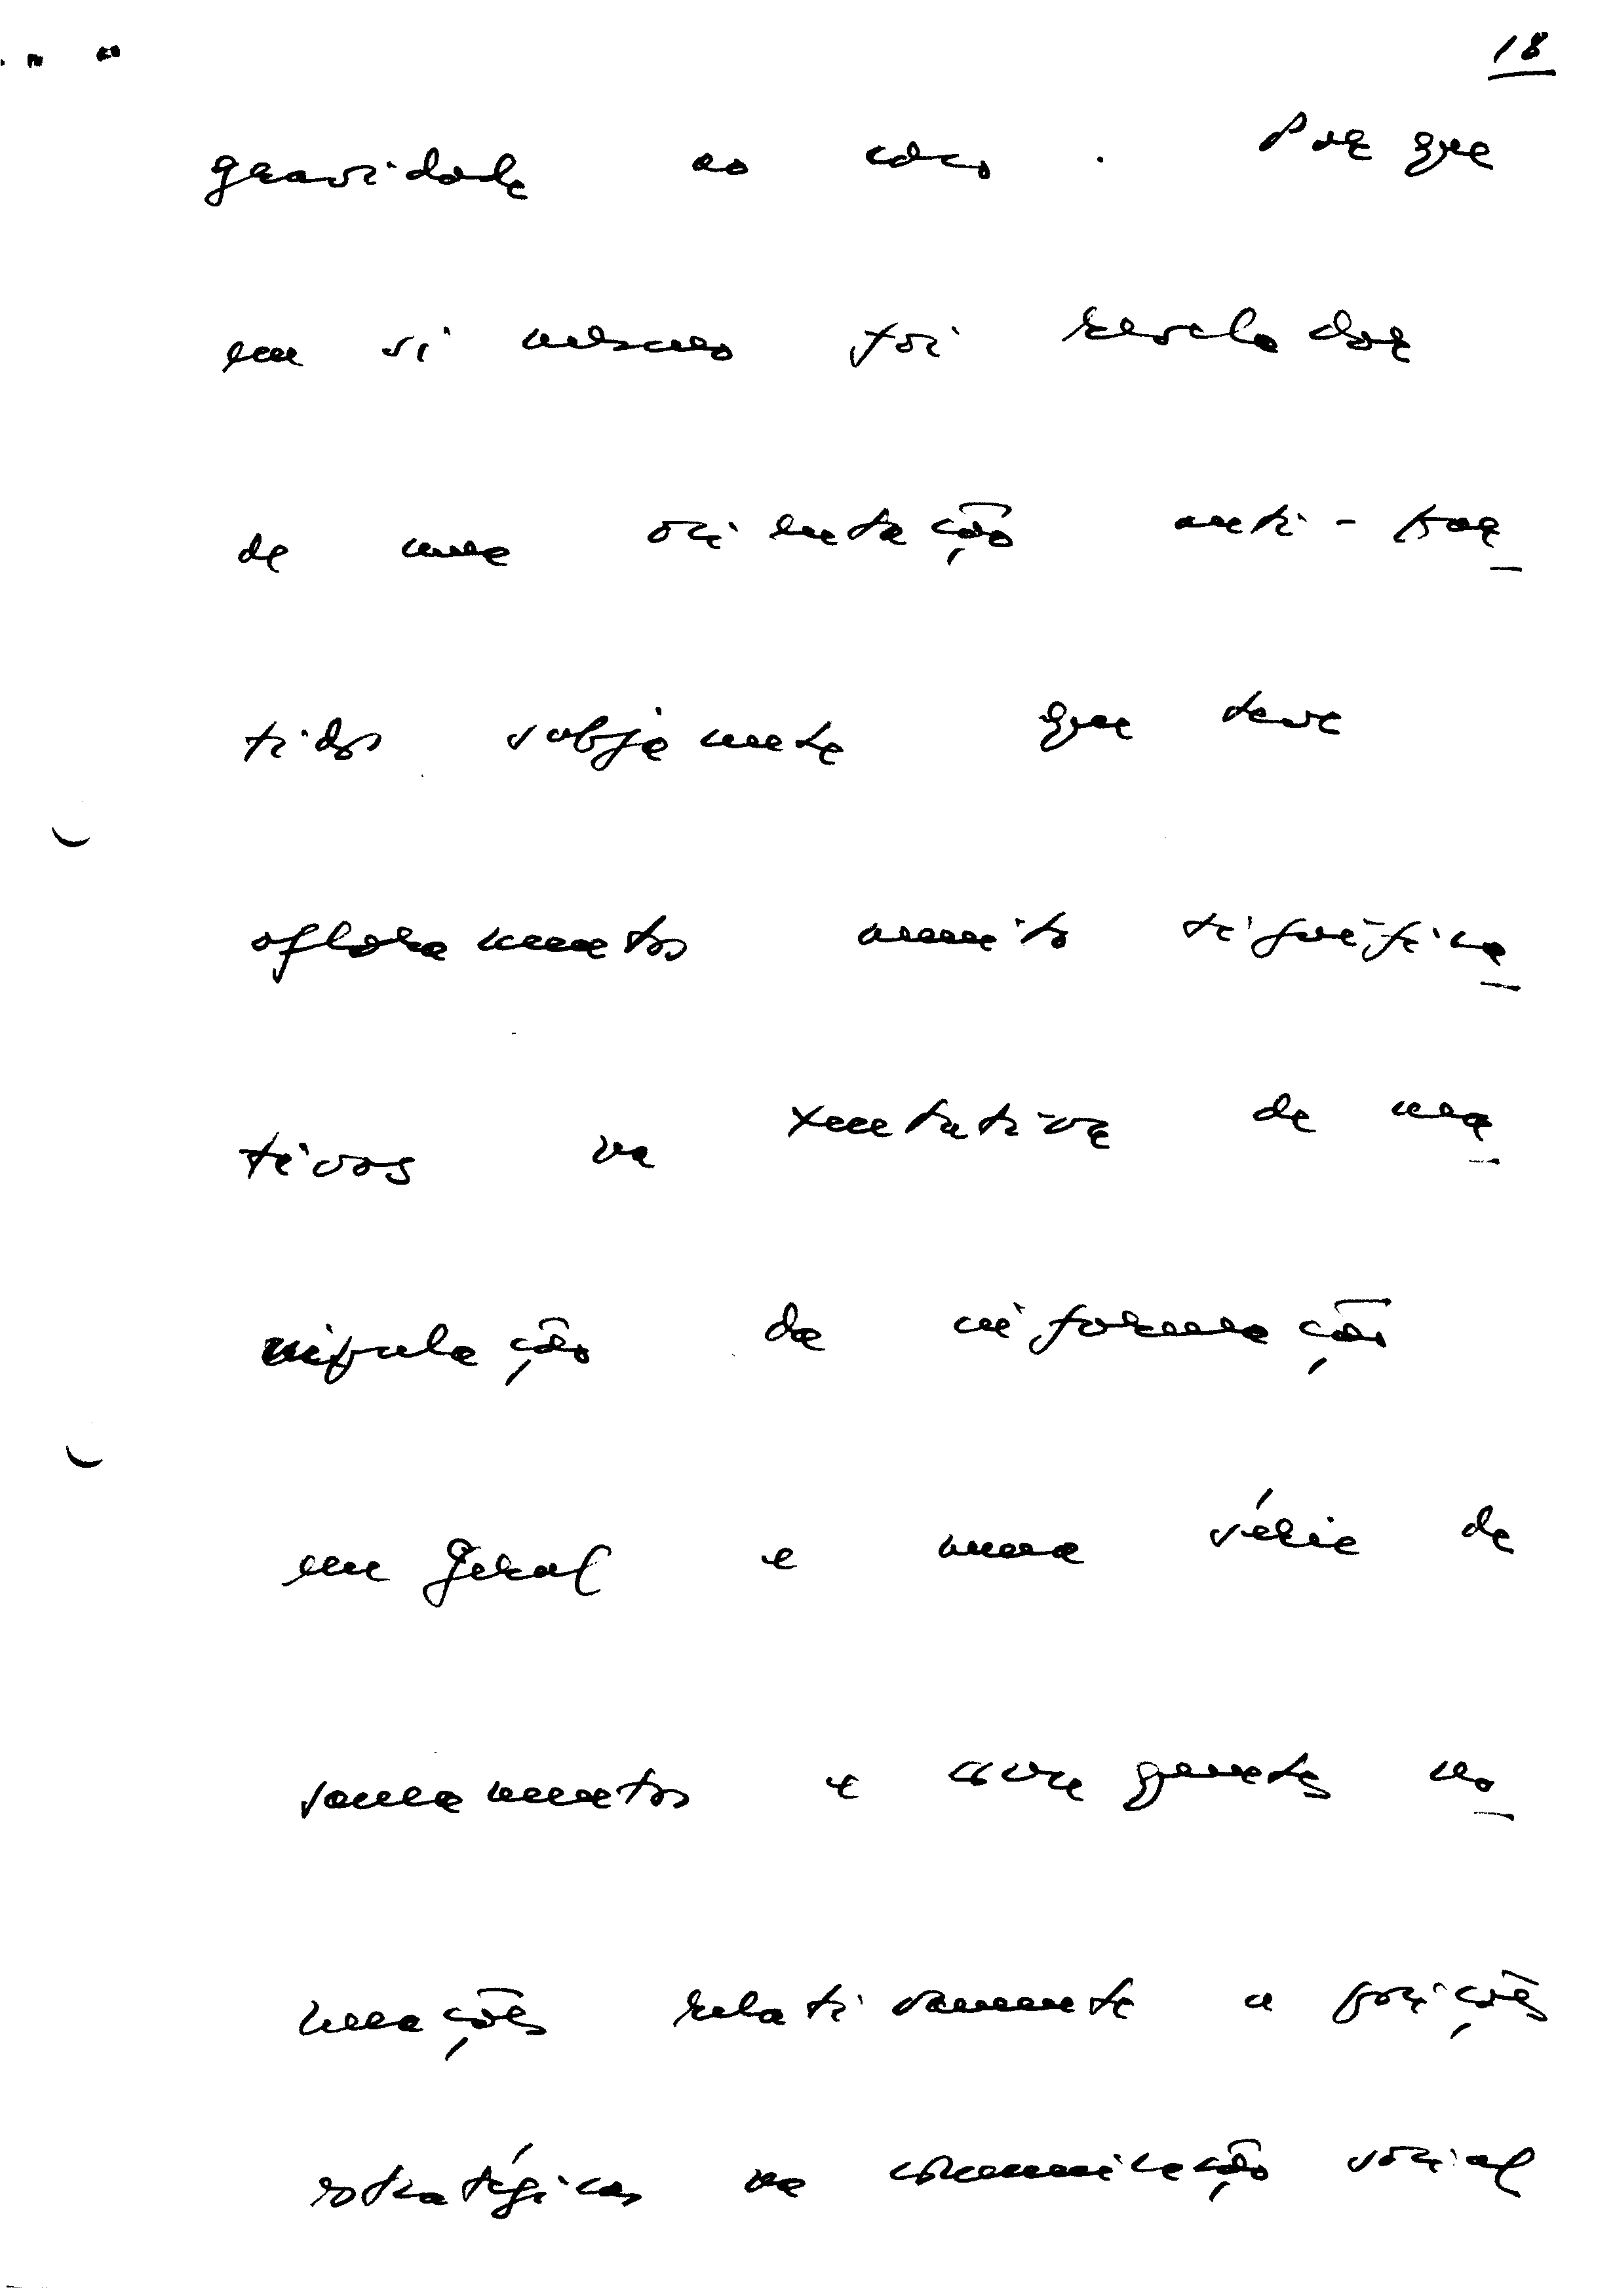 18
gravidade ao caso. Porque
em si mesmo foi revelador
de uma orientação anti-par_
tidos subjacente que teve
afloramentos muito significa_
tivos na tentativa de ma_
nipulação da informação
em geral e numa série de
saneamentos e no_
meações relativamente a posições
estratégicas na comunicação social